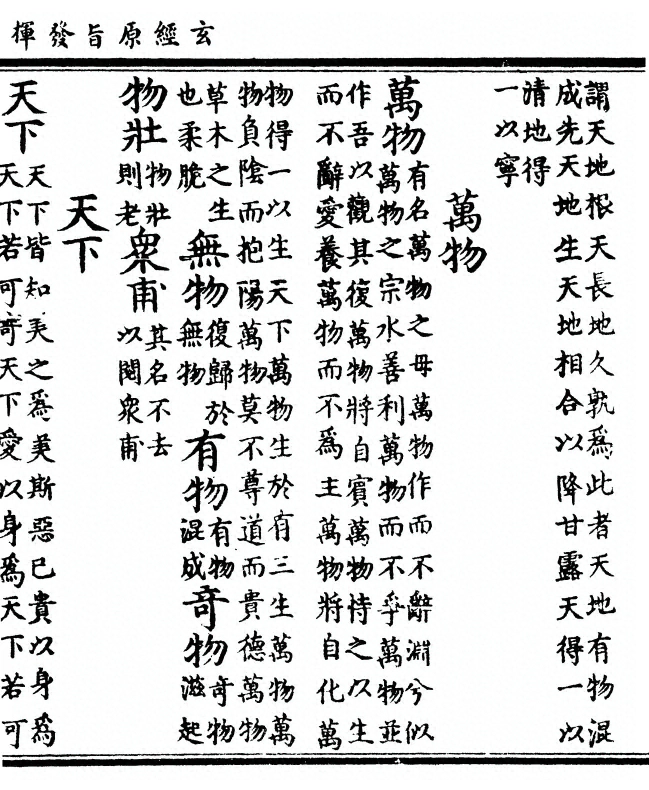 玄經原旨發揮
謂天地根天長地久孰爲此者天地有物混
成先天地生天地相合以降甘露天得一以
清地得
一以寧
萬物
萬物
有名萬物之母萬物作而不辭淵兮似
萬物之宗水善利萬物而不爭萬物並
作吾以觀其復萬物將自賓萬物恃之以生
而不辭愛養萬物而不爲主萬物將自化萬
物得一以生天下萬物生於有三生萬物萬
物負陰而抱陽萬物莫不尊道而貴德萬物
草木之生
也柔脆
無物
復歸於
無物
有物
有物
混成
奇物
奇物
滋起
物壯
物壯
則老
衆甫
其名不去
以閱衆甫
天下
天下
天下皆知美之爲美斯惡已貴以身爲
天下若可寄天下愛以身爲天下若可